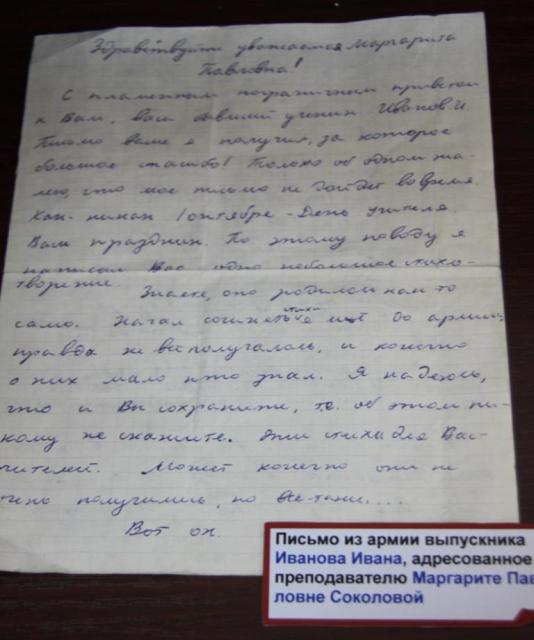 Здравствуйте уважаемая Маргарита
Павловна!
С пламенным пограничным приветом
к Вам, ваш бывший ученик Иванов И.
Письмо ваше я получил, за которое
большое спасибо! Только об одном жа-
лею, что мое письмо не дойдет вовремя.
Как-никак 1 октября - День учителя.
Ваш праздник. По этому поводу я
написал Вас одно небольшое стихо-
творение.
Знаете, оно родилось как то
само. Начал сочинять стихи ещё до армии,
правда не все получалось, и конечно
о них мало кто знал. Я надеюсь,
что и Вы сохраните, т.е. об этом ни-
кому не скажите. Эти стихи для Вас-
чителей. Может конечно они не
чень получились, но все-таки....
Вот он.
Письмо из армии выпускника
Иванова Ивана, адресованное
преподавателю Маргарите Пав
ловне Соколовой